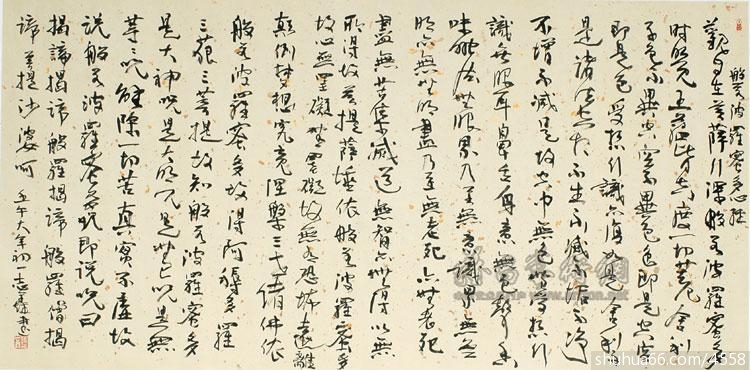 般若波羅蜜多心經
觀自在菩薩行深般若波羅蜜多
時照見五蘊皆空度一切苦厄舍利
子色不異空空不異色色即是空空
即是色受想行識亦復如是舍利子
是諸法空相不生不滅不垢不淨
不增不減是故空中無色無受想行
識無眼耳鼻舌身意無色聲香
味觸法無眼界乃至無意識界無無
明亦無無明盡乃至無老死亦無老死
盡無苦集滅道無智亦無得以無
所得故菩提薩埵依般若波羅蜜多
故心無罣礙無罣礙故無有恐怖遠離
顛倒夢想究竟涅槃三世諸佛依
般若波羅蜜多故得阿耨多羅
三藐三菩提故知般若波羅蜜多
是大神咒是大明咒是無上咒是無
等等咒能除一切苦真實不虛故
說般若波羅蜜多咒即說咒曰
揭諦揭諦般羅揭諦般羅僧揭
諦菩提沙婆呵 壬午大年初一
shuhua66.com/4558